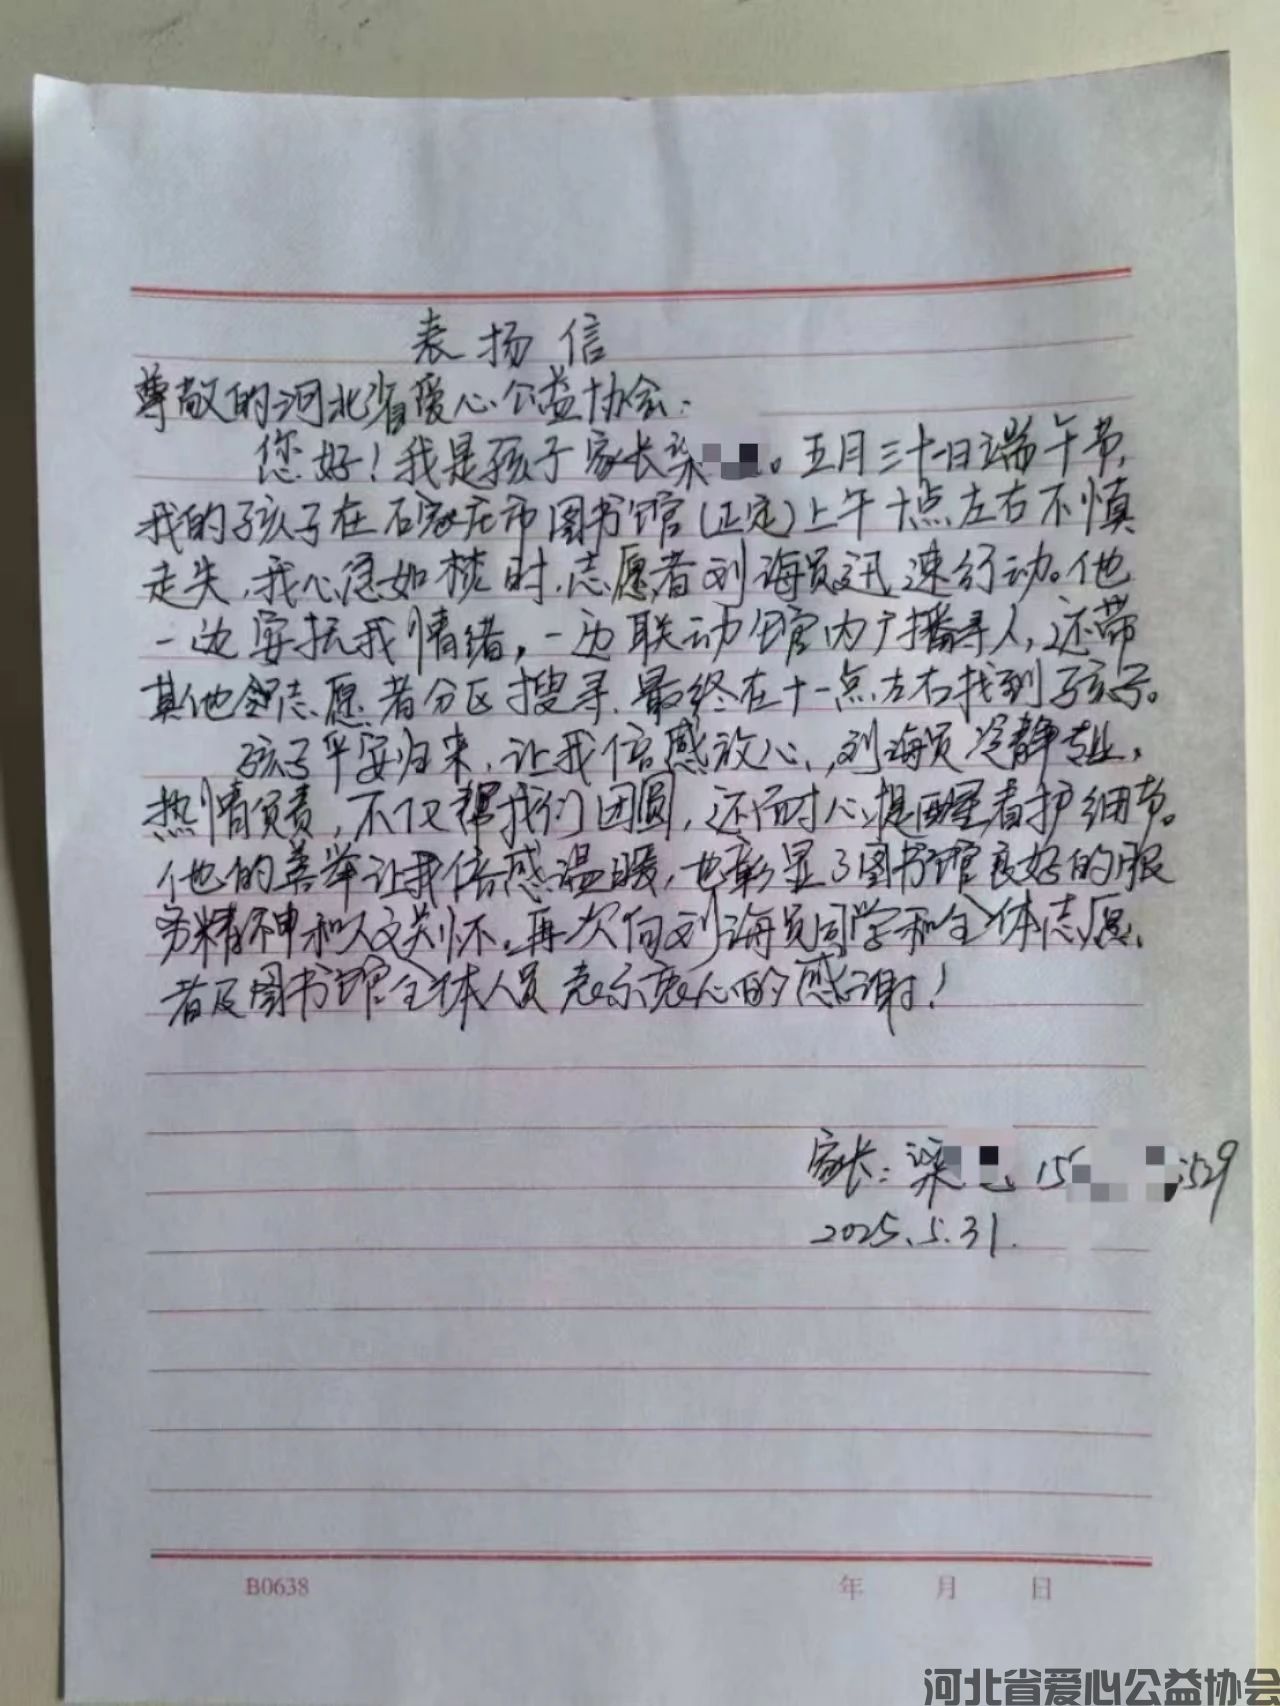 表扬信
尊敬的河北省爱心公益协会:
您好!我是孩子家长梁。五月三十一日端午节,
我的孩子在石家庄市图书馆(正定)上午十点左右不慎
走失,我心急如焚时,志愿者刘海员迅速行动。他
一边安抚我情绪,一边联动馆内广播寻人,还带
其他志愿者分区搜寻,最终在十一点左右找到孩子。
孩子平安归来,让我倍感放心,刘海员冷静专业,
热情负责,不仅帮我们团圆,还耐心提醒看护细节。
他的善举让我倍感温暖,也彰显了图书馆良好的服
务精神和人文关怀。再次向刘海员同学和全体志愿
者及图书馆全体人员表示衷心的感谢!
家长:梁 15 529
2025.5.31.
B0638 年 月 日
河北省爱心公益协会